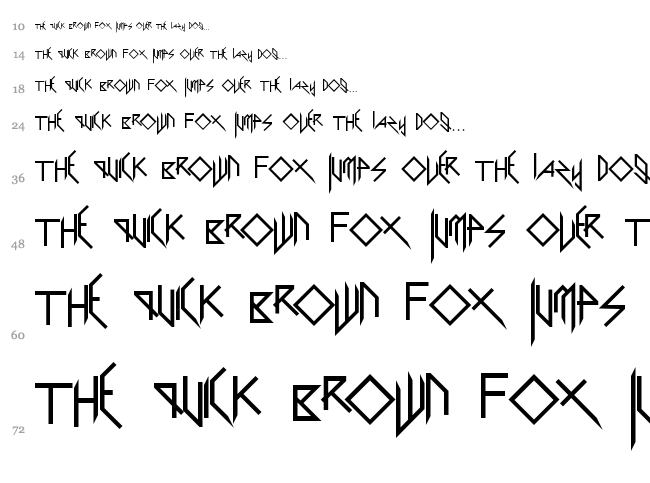 10 THE QUICK BROWN FOX JUMPS OVER THE LAZY DOG...
14 THE QUICK BROWN FOX JUMPS OVER THE LAZY DOG...
18 THE QUICK BROWN FOX JUMPS OVER THE LAZY DOG...
24 THE QUICK BROWN FOX JUMPS OVER THE LAZY DOG...
36 THE QUICK BROWN FOX JUMPS OVER THE LAZY DOG
48 THE QUICK BROWN FOX JUMPS OVER T
60 THE QUICK BROWN FOX JUMPS
72 THE QUICK BROWN FOX JU